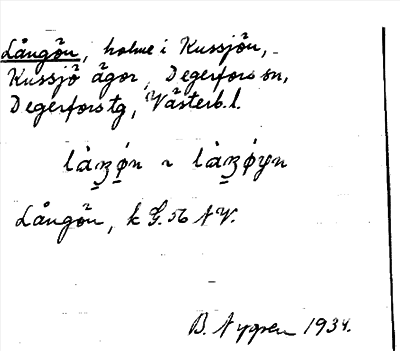 Långön, holme i Kussjön,
Kussjö ägor, Degerfors sn,
Degerfors tg, Västerb. l.
làŋǿn ~ làŋǿyn
Långön, k G. 56 NV.
B. Nygren 1934.